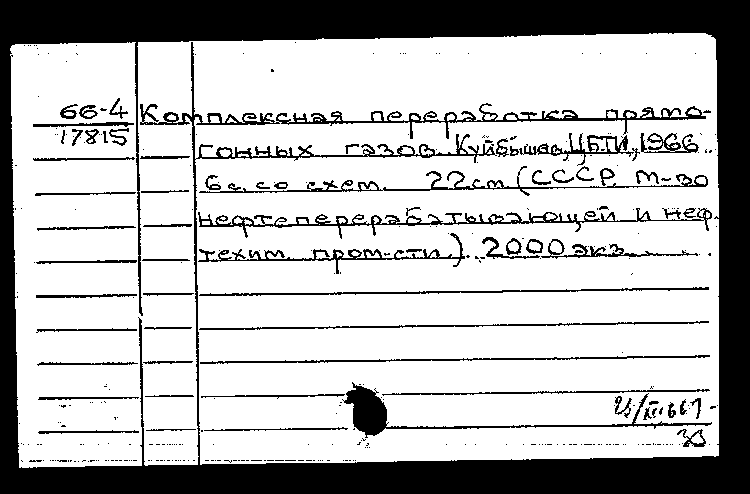 66-4 Комплексная переработка прямо-
17815
гонных газов. Куйбышев, ЦБТИ, 1966.
6 с. со схем. 22 см. (СССР. М-во
нефтеперерабатывающей и неф-
техим. пром-сти). 2000 экз.